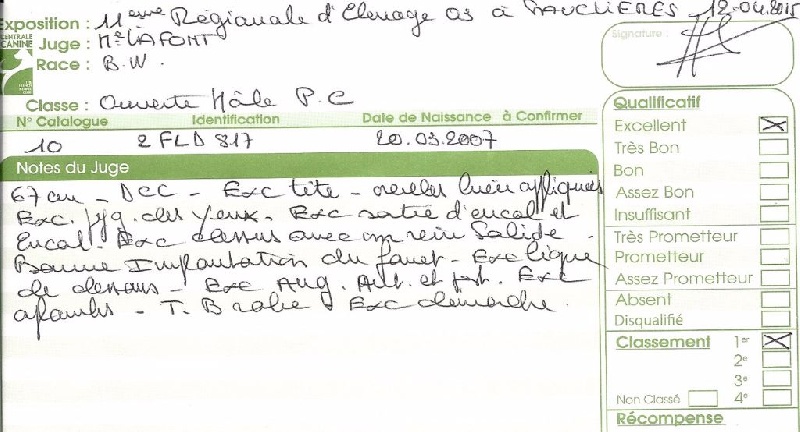 Exposition : 11ème Régionale d'Elevage 03 à 12-04-2015
CENTRALE CANINE
Juge : Mr LAFONT
Race : B.W.
Signature :
Classe : Ouverte Mâle P.C
N° Catalogue Identification Date de Naissance à Confirmer
10 2 FLD 817 20.03.2007
Notes du Juge
67 cm - DCC - Exc tête - oreilles bien appliquées
Exc. pig. des yeux. Exc sortie d'encol et
Encol. Exc dessus avec un rein Solide.
Bonne Implantation du fouet - Exc ligne
de dessous - Exc Ang. Ant. et post. Exc
aplombs - T. B robe. Exc démarche.
Qualificatif
Excellent
Très Bon
Bon
Assez Bon
Insuffisant
Très Prometteur
Prometteur
Assez Prometteur
Absent
Disqualifié
Classement 1er
2e
3e
Non Classé 4e
Récompense